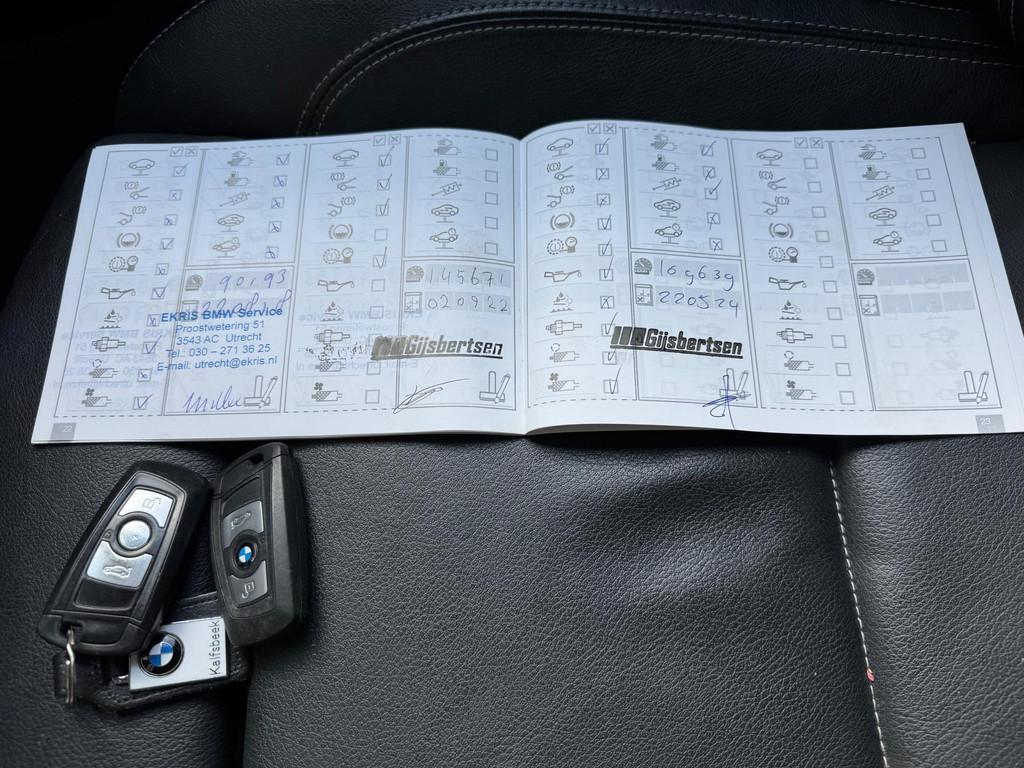 EKRIS BMW Service
Proostwetering 51
3543 AC Utrecht
Tel.: 030 - 271 36 25
E-mail: utrecht@ekris.nl
22
145671
020922
Gijsbertsen
169639
220524
Gijsbertsen
23
Kalfsbeek